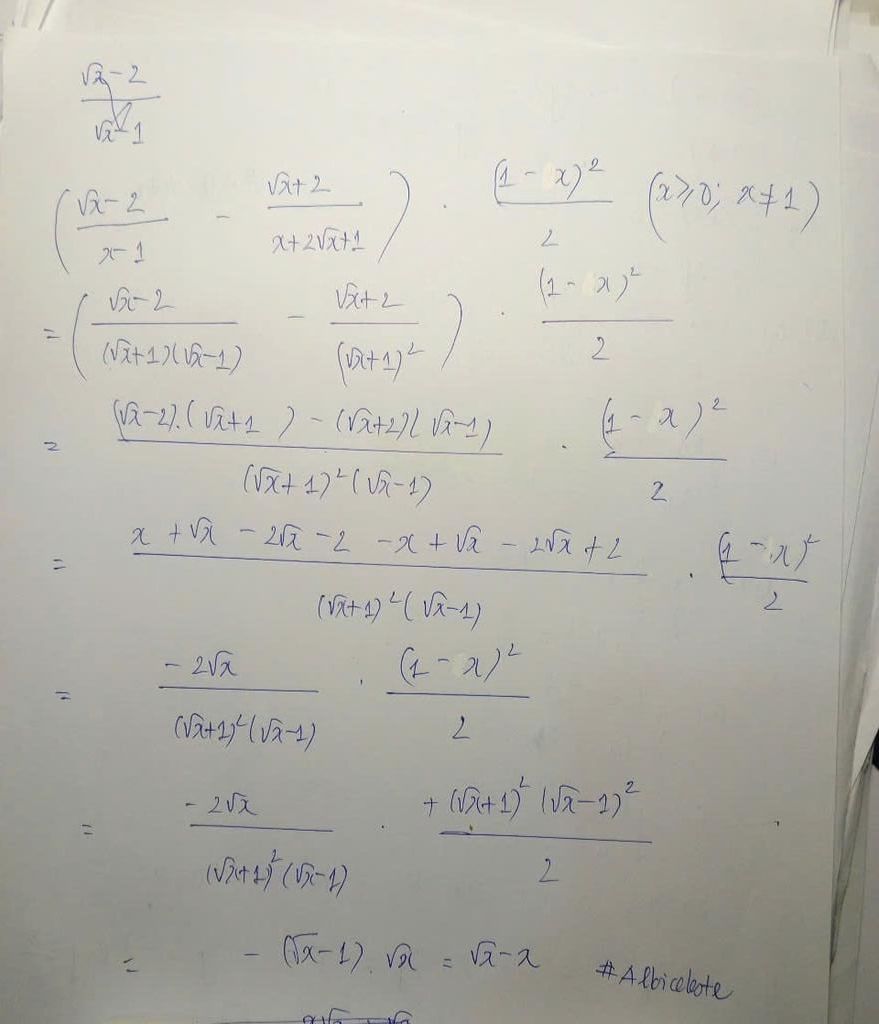 √x - 2 / √x - 1
( (√x - 2)/(x - 1) - (√x + 2)/(x + 2√x + 1) ) · (1 - x)²/2 (x ≥ 0; x ≠ 1)
= ( (√x - 2)/((√x + 1)(√x - 1)) - (√x + 2)/(√x + 1)² ) · (1 - x)²/2
= ((√x - 2).(√x + 1) - (√x + 2)(√x - 1))/((√x + 1)²(√x - 1)) · (1 - x)²/2
= (x + √x - 2√x - 2 - x + √x - 2√x + 2)/((√x + 1)²(√x - 1)) · (1 - x)²/2
= -2√x/((√x + 1)²(√x - 1)) · (1 - x)²/2
= -2√x/((√x + 1)²(√x - 1)) · +(√x + 1)²(√x - 1)²/2
= -(√x - 1).√x = √x - x #Albiceleste